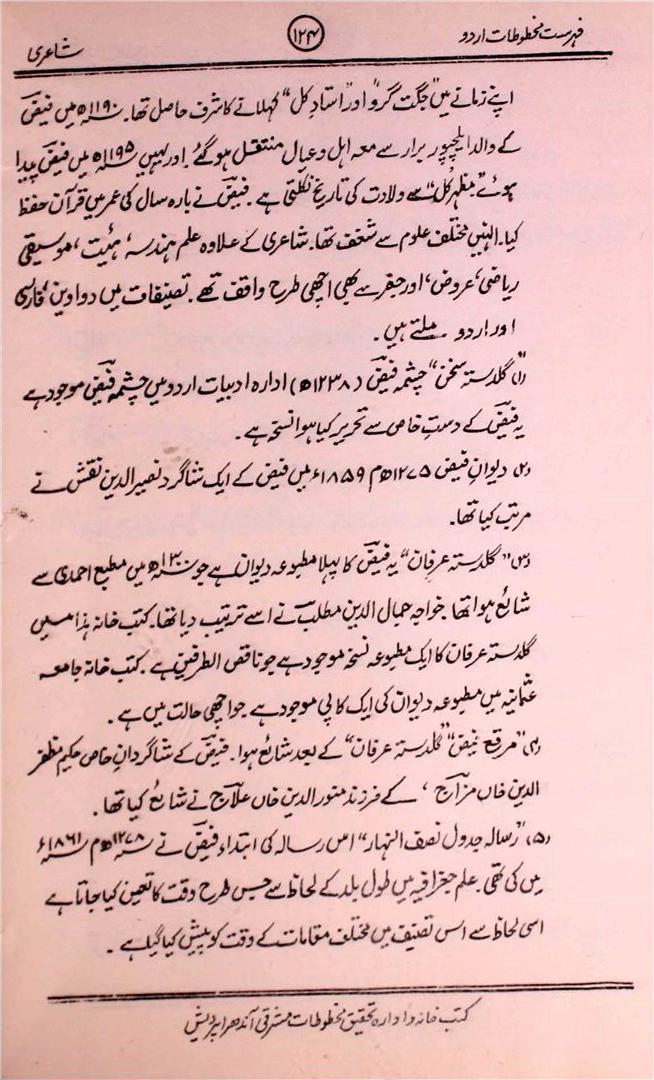 فہرست مخطوطات اردو
۱۲۴
شاعری
اپنے زمانے میں "جگت گرو" اور "استاد کل" کہلانے کا شرف حاصل تھا۔ سنہ ۱۱۹۰ھ میں فیضؔ
کے والد ایلچپور برار سے معہ اہل و عیال منتقل ہوگئے۔ اور یہیں سنہ ۱۱۹۵ھ میں فیضؔ پیدا
ہوئے "مظہر کل" سے ولادت کی تاریخ نکلتی ہے۔ فیضؔ نے بارہ سال کی عمر میں قرآن حفظ
کیا۔ انہیں مختلف علوم سے شغف تھا۔ شاعری کے علاوہ علم ہندسہ، ہئیت، موسیقی
ریاضی، عروض، اور جفر سے بھی اچھی طرح واقف تھے۔ تصنیفات میں دواوین، فارسی
اور اردو ملتے ہیں۔
(۱) گلدستہ سخن "چشمہ فیضؔ (۱۲۳۸ھ) ادارہ ادبیات اردو میں چشمہ فیضؔ موجود ہے
یہ فیضؔ کے دست خاص سے تحریر کیا ہوا نسخہ ہے۔
(۲) دیوانِ فیض ۱۲۷۵ھ م ۱۸۵۹ء میں فیض کے ایک شاگرد نصیر الدین نقش نے
مرتب کیا تھا۔
(۳) "گلدستہ عرفان" یہ فیضؔ کا پہلا مطبوعہ دیوان ہے جو سنہ ۱۳۰۰ھ میں مطبع احمدی سے
شائع ہوا تھا۔ خواجہ جمال الدین مطلبؔ نے اسے ترتیب دیا تھا۔ کتب خانہ ہذا میں
گلدستہ عرفان کا ایک مطبوعہ نسخہ موجود ہے جو ناقص الطرفین ہے۔ کتب خانہ جامعہ
عثمانیہ میں مطبوعہ دیوان کی ایک کاپی موجود ہے جو اچھی حالت میں ہے۔
(۴) "مرقع فیض" "گلدستہ عرفان" کے بعد شائع ہوا۔ فیضؔ کے شاگردانِ خاص حکیم مظفر
الدین خاں مزاجؔ، کے فرزند منور الدین خاں علاجؔ نے شائع کیا تھا۔
(۵) "رسالہ جدول نصف النہار" اس رسالہ کی ابتداء فیضؔ نے سنہ ۱۲۷۸ھ م سنہ ۱۸۶۱ء
میں کی تھی۔ علم جغرافیہ میں طول بلد کے لحاظ سے جس طرح وقت کا تعین کیا جاتا ہے
اسی لحاظ سے اس تصنیف میں مختلف مقامات کے وقت کو پیش کیا گیا ہے۔
کتب خانہ و ادارہ تحقیق مخطوطات مشرقی آندھرا پردیش